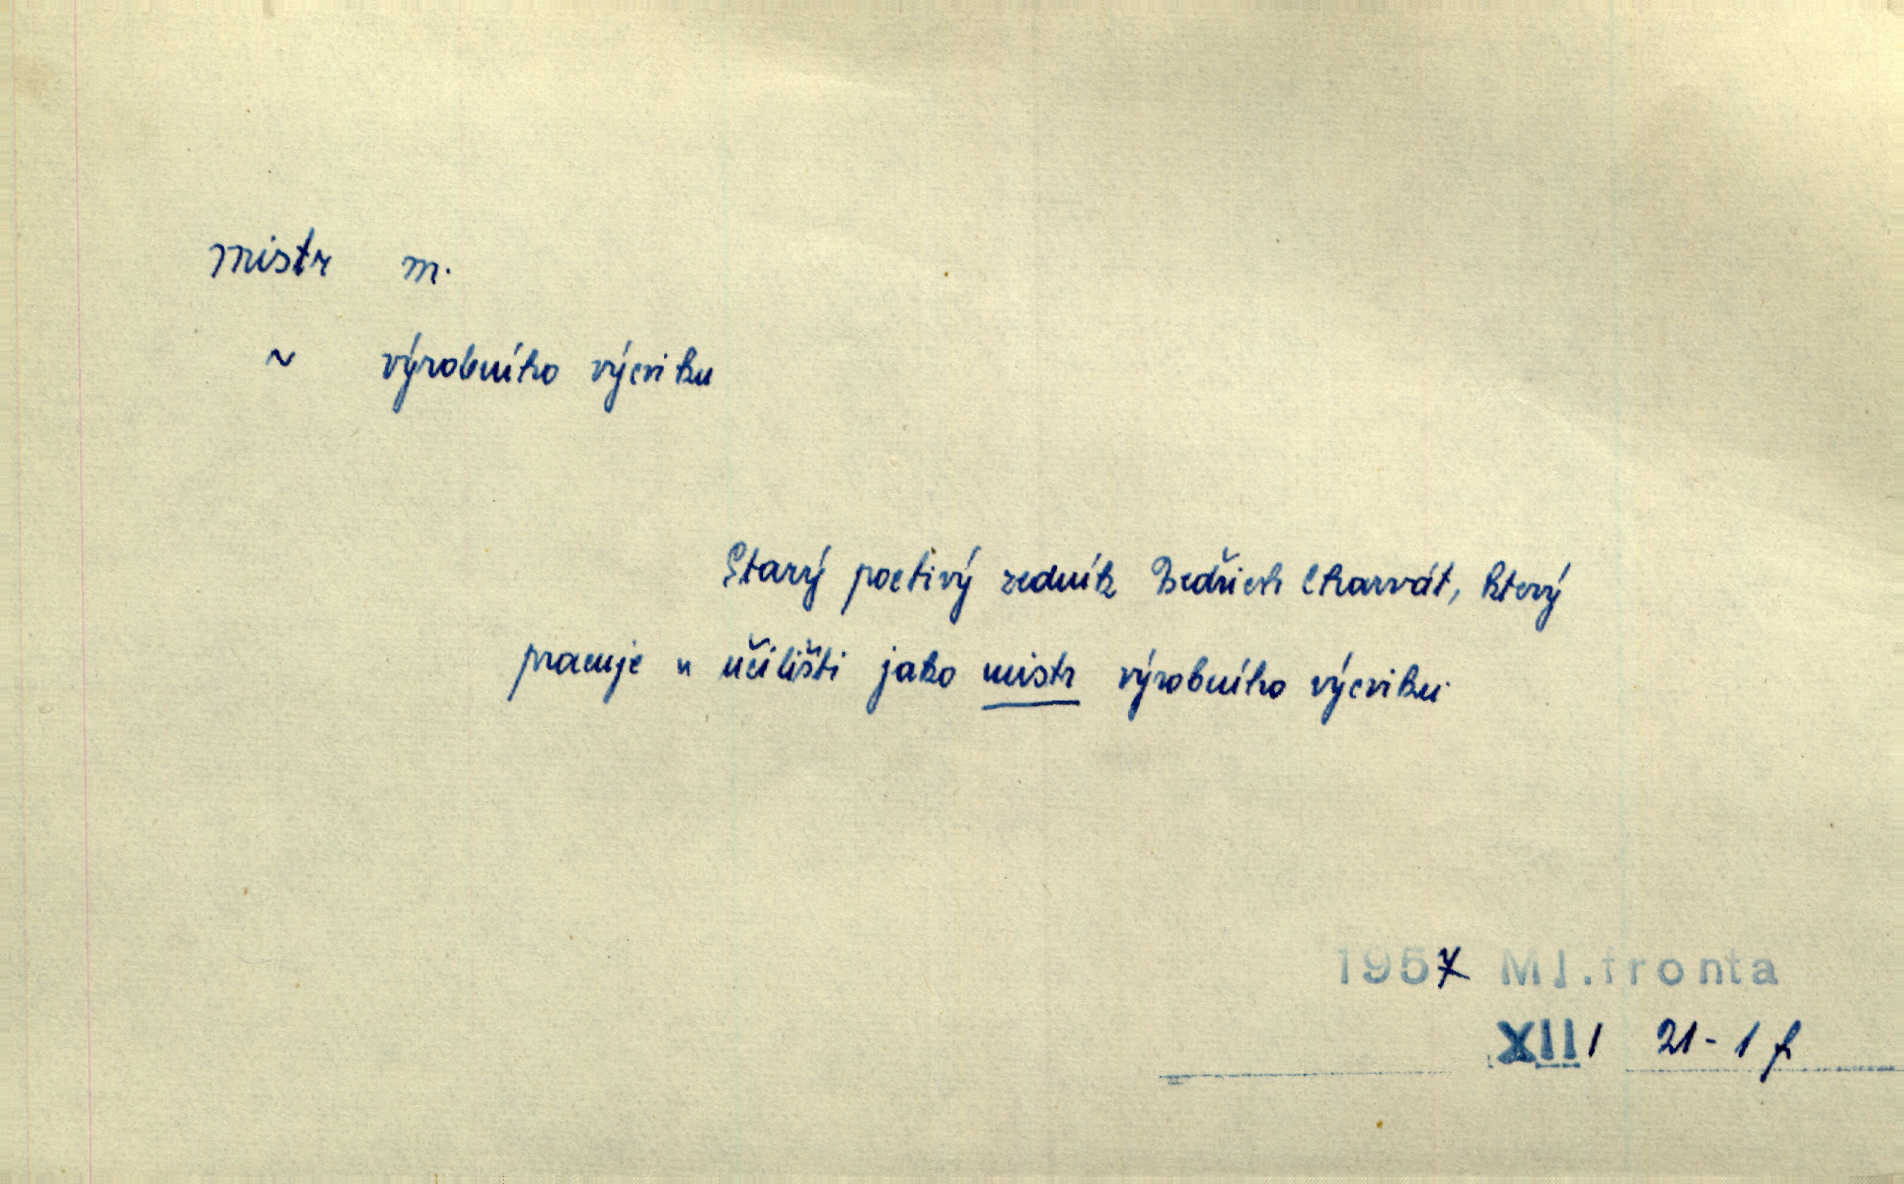 mistr m.
~ výrobního výcviku
Starý poctivý zedník Bedřich Charvát, který
pracuje v učilišti jako mistr výrobního výcviku
1957 Ml.fronta
XIII 21-1